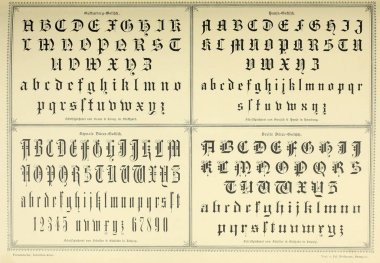 Gutenberg-Gotisch.
A B C D E F G H I K
L M N O P Q R S T U
V W X Y Z
a b c d e f g h i j k l m n o
p q r s ſ t u v w x y z
Psalter-Gotisch.
A B C D E F G H I J
K L M N O P Q R S T
U V W X Y Z
a b c d e f g h i j k l m n o p q r
s ſ t u v w x y z
Schmale Dürer-Gotisch.
A B C D E F G H I J K L M
N O P Q R S T U V W X Y Z
a b c d e f g h i j k l m n o p q r
s ſ t u v w x y z
1 2 3 4 5 6 7 8 9 0
Breite Dürer-Gotisch.
A B C D E F G H I J
K L M N O P Q R S
T U V W X Y Z
a b c d e f g h i j k l m n o p q
r s ſ t u v w x y z